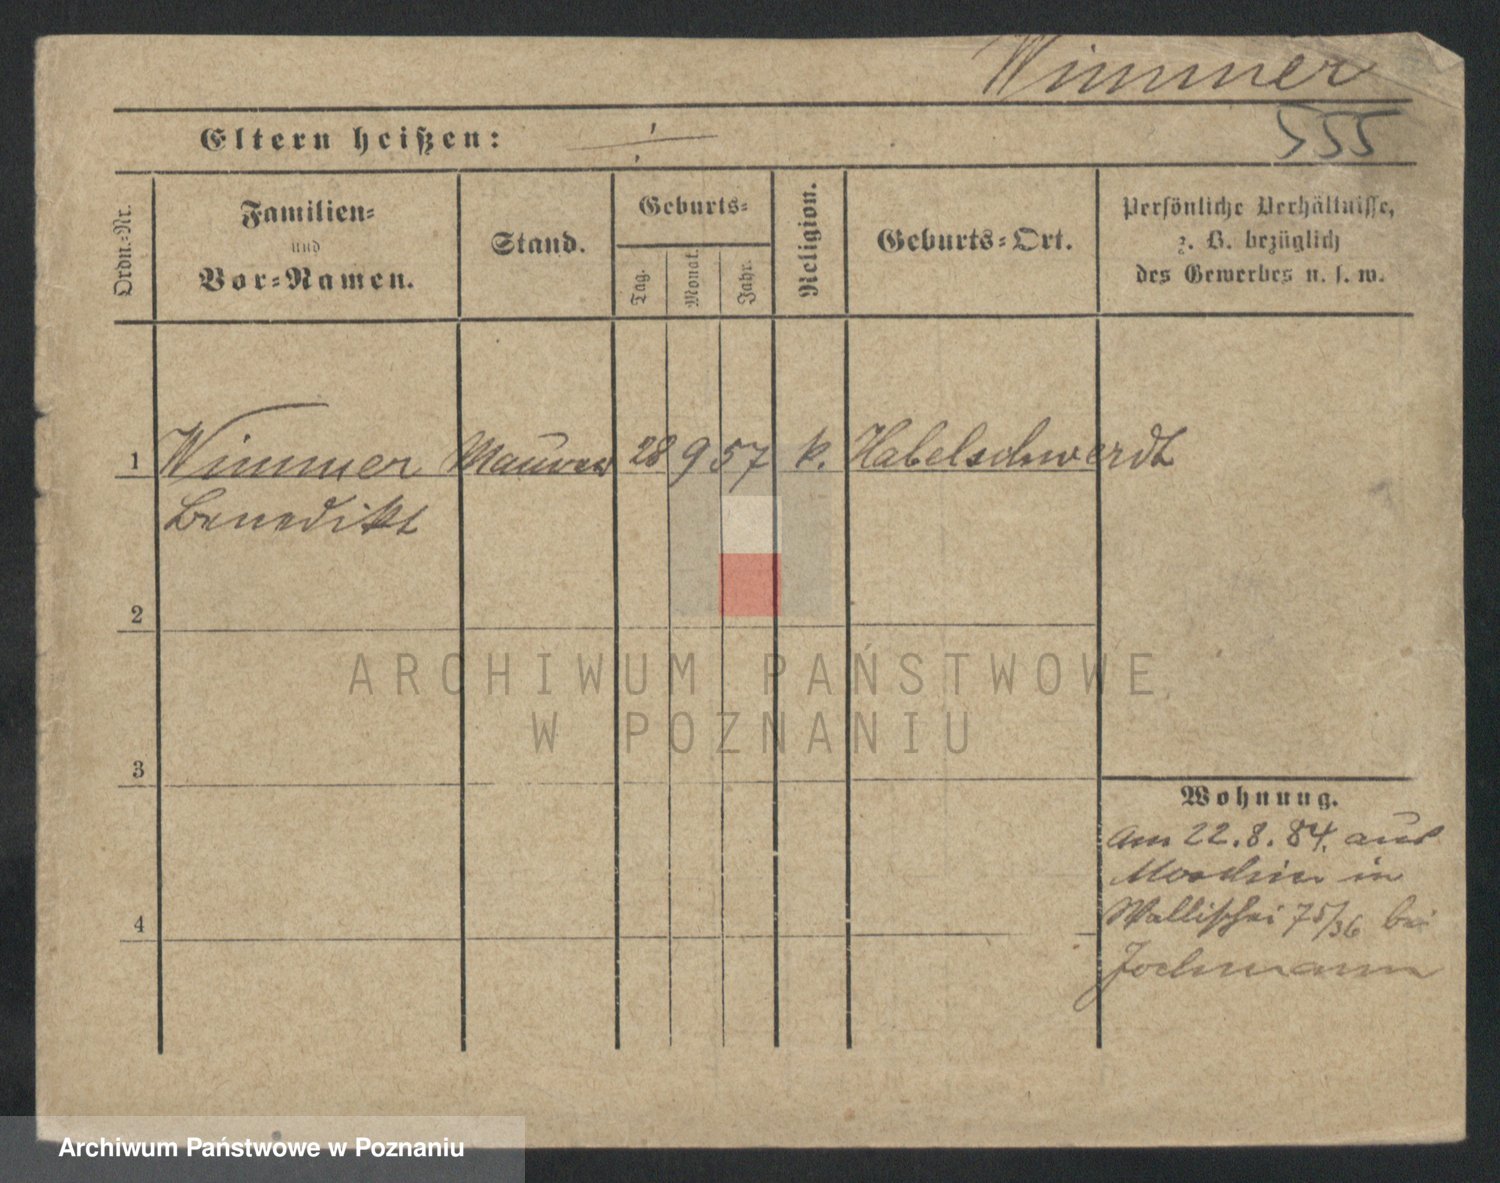 Wimmer
555
Eltern heißen:
Ordn.-Nr.
Familien-
und
Vor-Namen.
Stand.
Geburts-
Tag.
Monat.
Jahr.
Religion.
Geburts-Ort.
Persönliche Verhältnisse,
z. B. bezüglich
des Gewerbes u. s. w.
1 Wimmer Maurer 28 9 57 k. Habelschwerdt
Benedikt
2
ARCHIWUM PAŃSTWOWE
W POZNANIU
3
Wohnung.
am 22.8.84. aus
Moschin in
Wallischei 75/36 bei
4
Jochmann
Archiwum Państwowe w Poznaniu